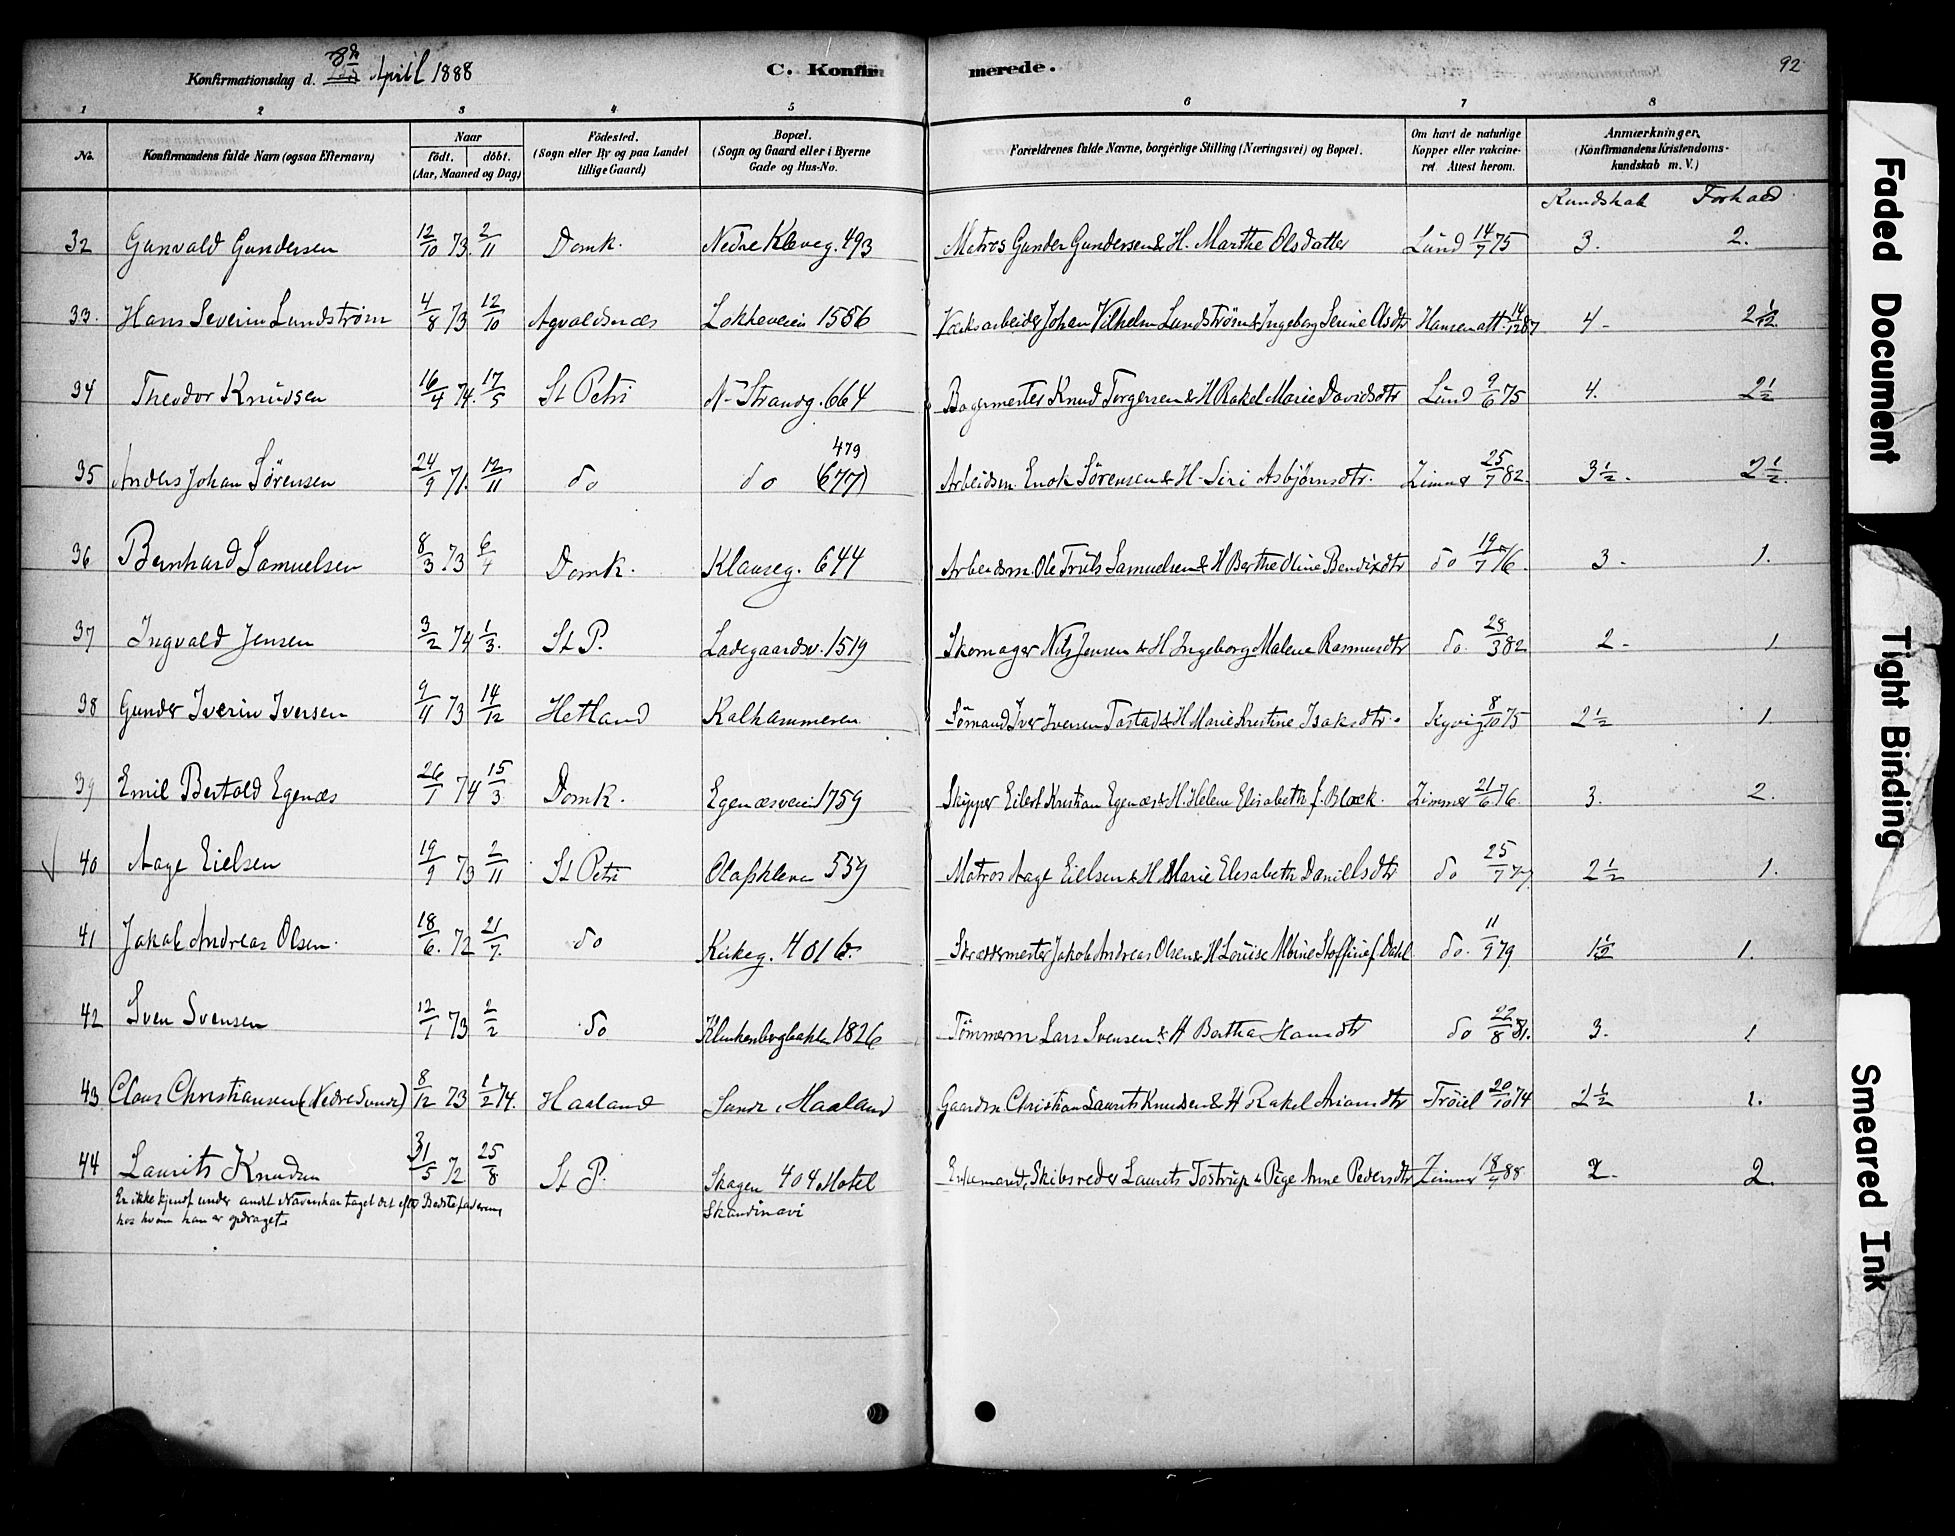 Konfirmationsdag d. 8de April 1888
C. Konfirmerede.
92
1 2 3 4 5 6 7 8
No. Konfirmandens fulde Navn (ogsaa Efternavn) Naar født. døbt. (Aar, Maaned og Dag) Fødested. (Sogn eller By og paa Landet tillige Gaard) Bopæl. (Sogn og Gaard eller i Byerne Gade og Hus-No. Forældrenes fulde Navne, borgerlige Stilling (Næringsvei) og Bopæl. Om havt de naturlige Kopper eller vakcineret Attest herom. Anmærkninger. (Konfirmandens Kristendomskundskab m. V.)
Kundskab Forhold
32 Gunvald Gundersen 12/10 73. 2/11 Domk. Nedre Kleveg. 493 Matros Gunder Gundersen & H. Marthe Olsdatter Lund 14/7 75 3. 2.
33. Hans Severin Lundstrøm 4/8 73 12/10 Agvaldsnæs Løkkeveien 1556 Johan Vilhelm Lundstrøm & Ingeborg Serine Olsdtr Hansen att. 14/12 87 4- 2 1/2.
34 Theodor Knudsen 16/4 74. 17/5 St Petri N- Strandg. 664 Bagermester Knud Torgersen & H Rakel Marie Davidsdtr Lund 2/6 75 4. 2 1/2
35 Anders Johan Sørensen 24/9 71. 12/11 do do 479 (677) Arbeidsm. Enok Sørensen & H. Siri Asbjørnsdtr. Zimmer 25/7 82. 3 1/2. 2 1/2.
36 Bernhard Samuelsen 8/3 73 6/4 Domk. Klauseg. 644 Arbeidsm. Ole Truls Samuelsen & H Berthe Oline Bendixdtr do 19/7 76. 3. 1.
37 Ingvald Jensen 3/2 74 1/3. St P. Ladegaardsv. 1519 Skomager Nils Jensen & H Ingeborg Malene Rasmusdtr do. 28/3 82 2- 1
38 Gunder Iverin Iversen 9/11 73 14/12 Hetland Kalhammeren Sømand Iver Iversen Tastad & H Marie Kristine Isaksdtr. Kyvig 8/10 75 2 1/2 1
39 Emil Bertold Egenæs 26/1 74 15/3. Domk. Egenæsveien 1759 Skipper Eilert Kristian Egenæs & H. Helene Elisabeth f. Block. Zimmer 21/6 76. 3. 2.
40 Aage Eielsen 19/9 73 2/11 St Petri Olafskleven 559 Matros Aage Eielsen & H Marie Elesabeth Danielsdtr do 25/7 77 2 1/2 1.
41 Jakob Andreas Olsen. 18/6. 72 21/7. do Kirkeg. 401 b. Skræddermester Jakob Andreas Olsen & H Louise Albine Stoffine f. Dahl do. 11/9 79 1 1/2 1.
42 Sven Svensen 12/1 73 2/2 do Klinkenbergbakken 1826 Tømmerm Lars Svensen & H Bertha Hansdtr do 22/8 81. 3. 1
43 Claus Christiansen (Nedre Sunde) 8/12 73 1/2 74. Haaland Sunde, Haaland Gaardm. Christian Laurits Knudsen & H Rakel Ariansdtr Trøiel 20/10 74 2 1/2 1.
44 Laurits Knudsen 31/5 72 25/8 St P. Skagen 404 Hotel Enkemand, Skibsreder Laurits Tostrup & Pige Anne Pedersdtr Zimmer 18/4 88 2- 2.
Er ikke kjendt under andet Navn har taget det efter Bedstefaderen, Skandinavi
hos hvem han er opdraget.
Faded Document
Tight Binding
Smeared Ink